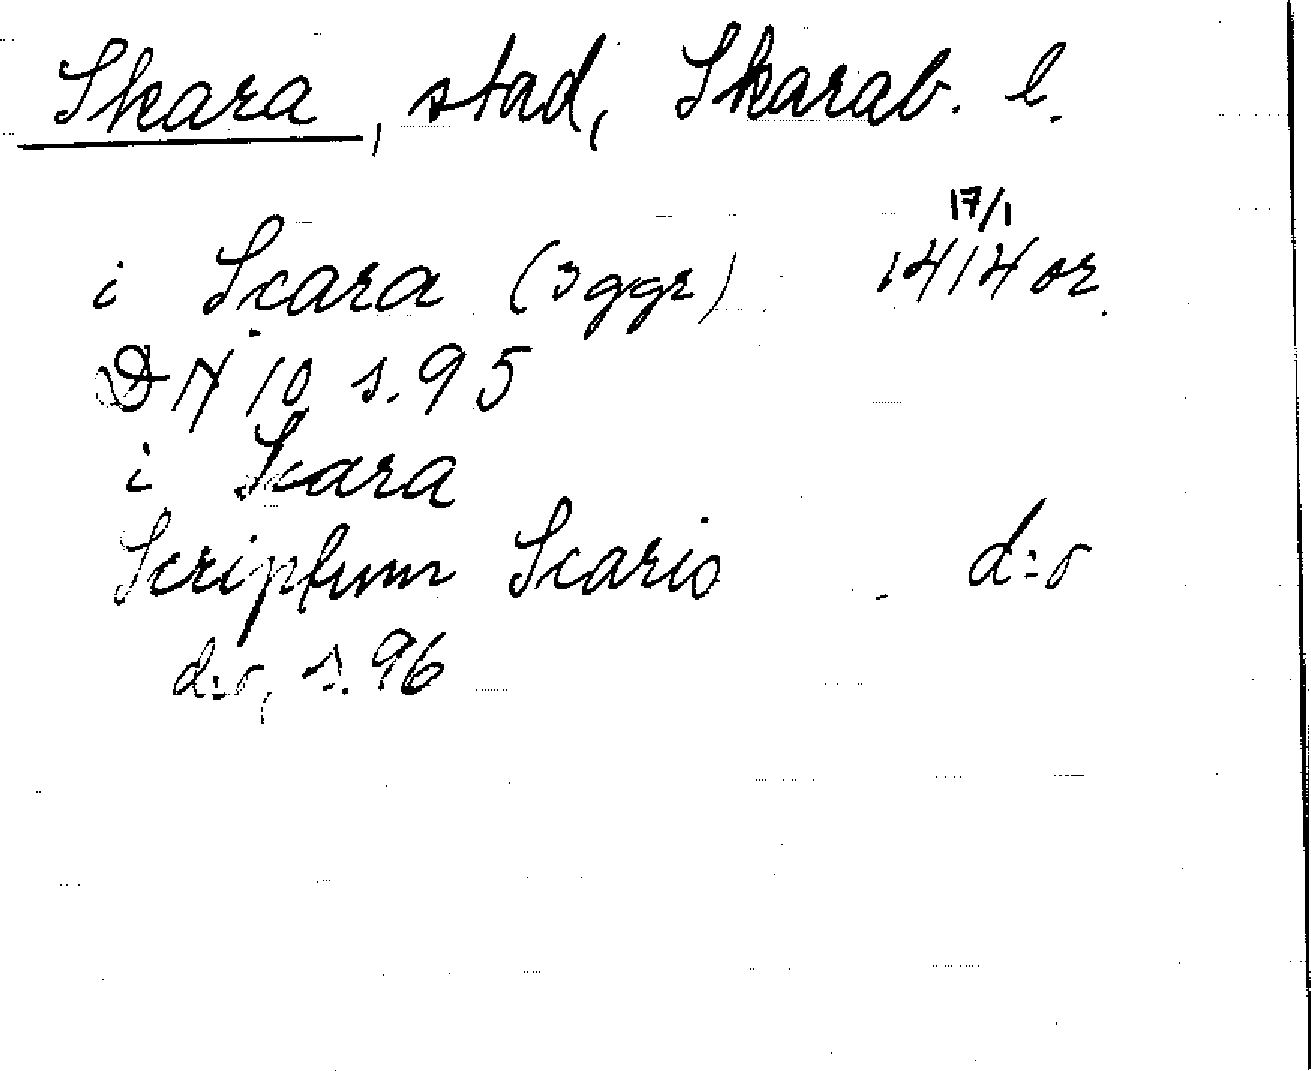 Skara, stad, Skarab. l.
17/1
i Scara (3 ggr) 1414 or.
DN 10 s. 95
i Scara
Scriptum Scaris d:o
d:o, s. 96